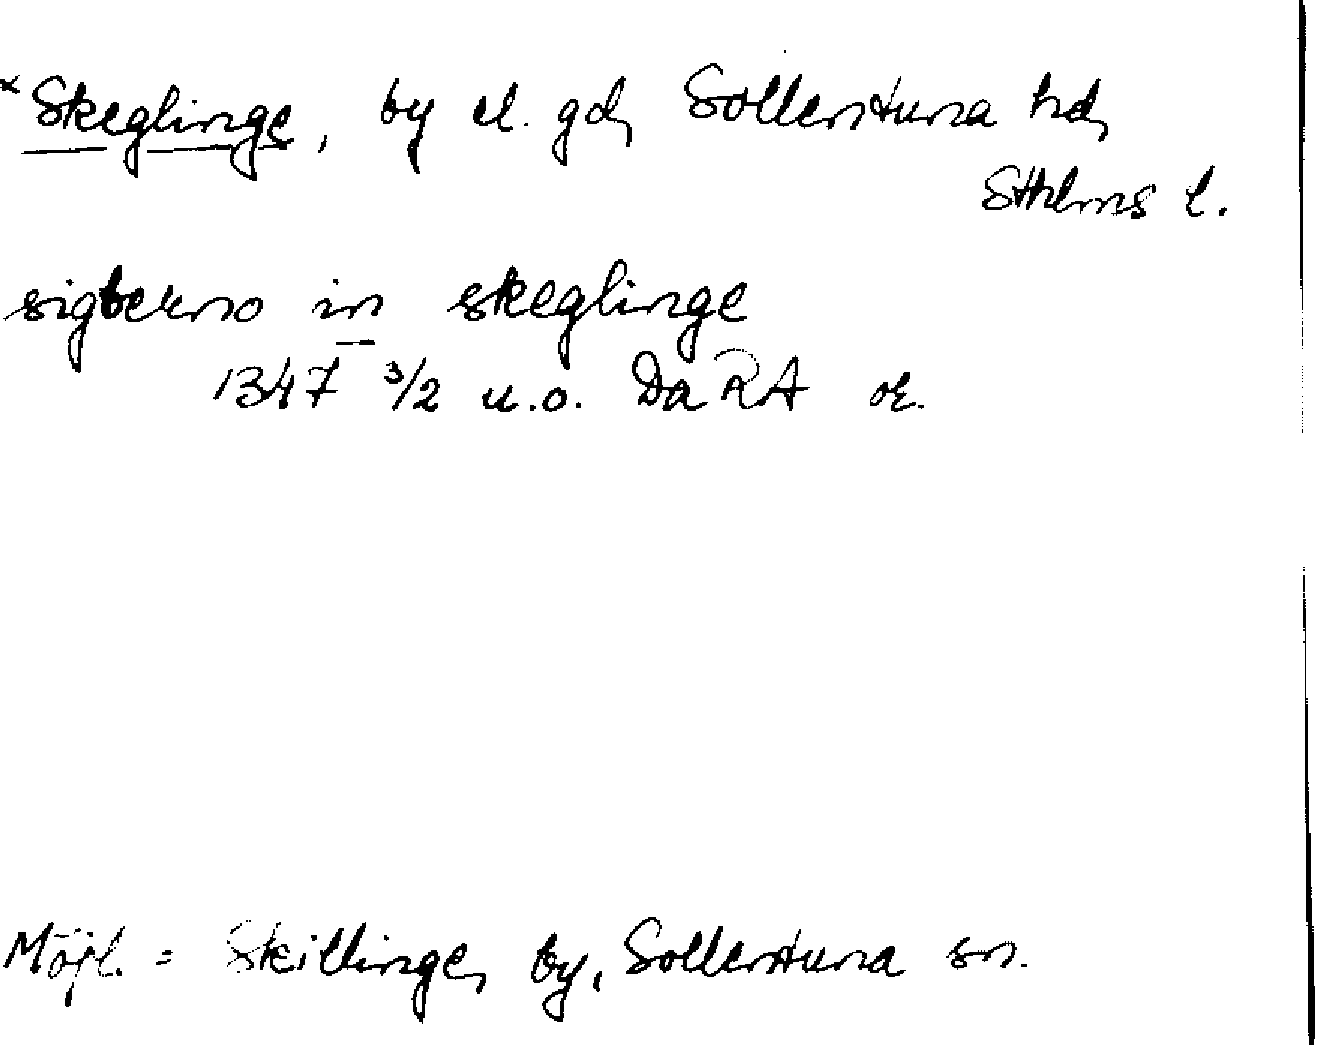 × Skeglinge, by el. gd, Sollentuna hd,
Sthlms l.
sigberno in skeglinge
1347 3/2 u.o. Da RA or.
Möjl. = Skillinge, by, Sollentuna sn.